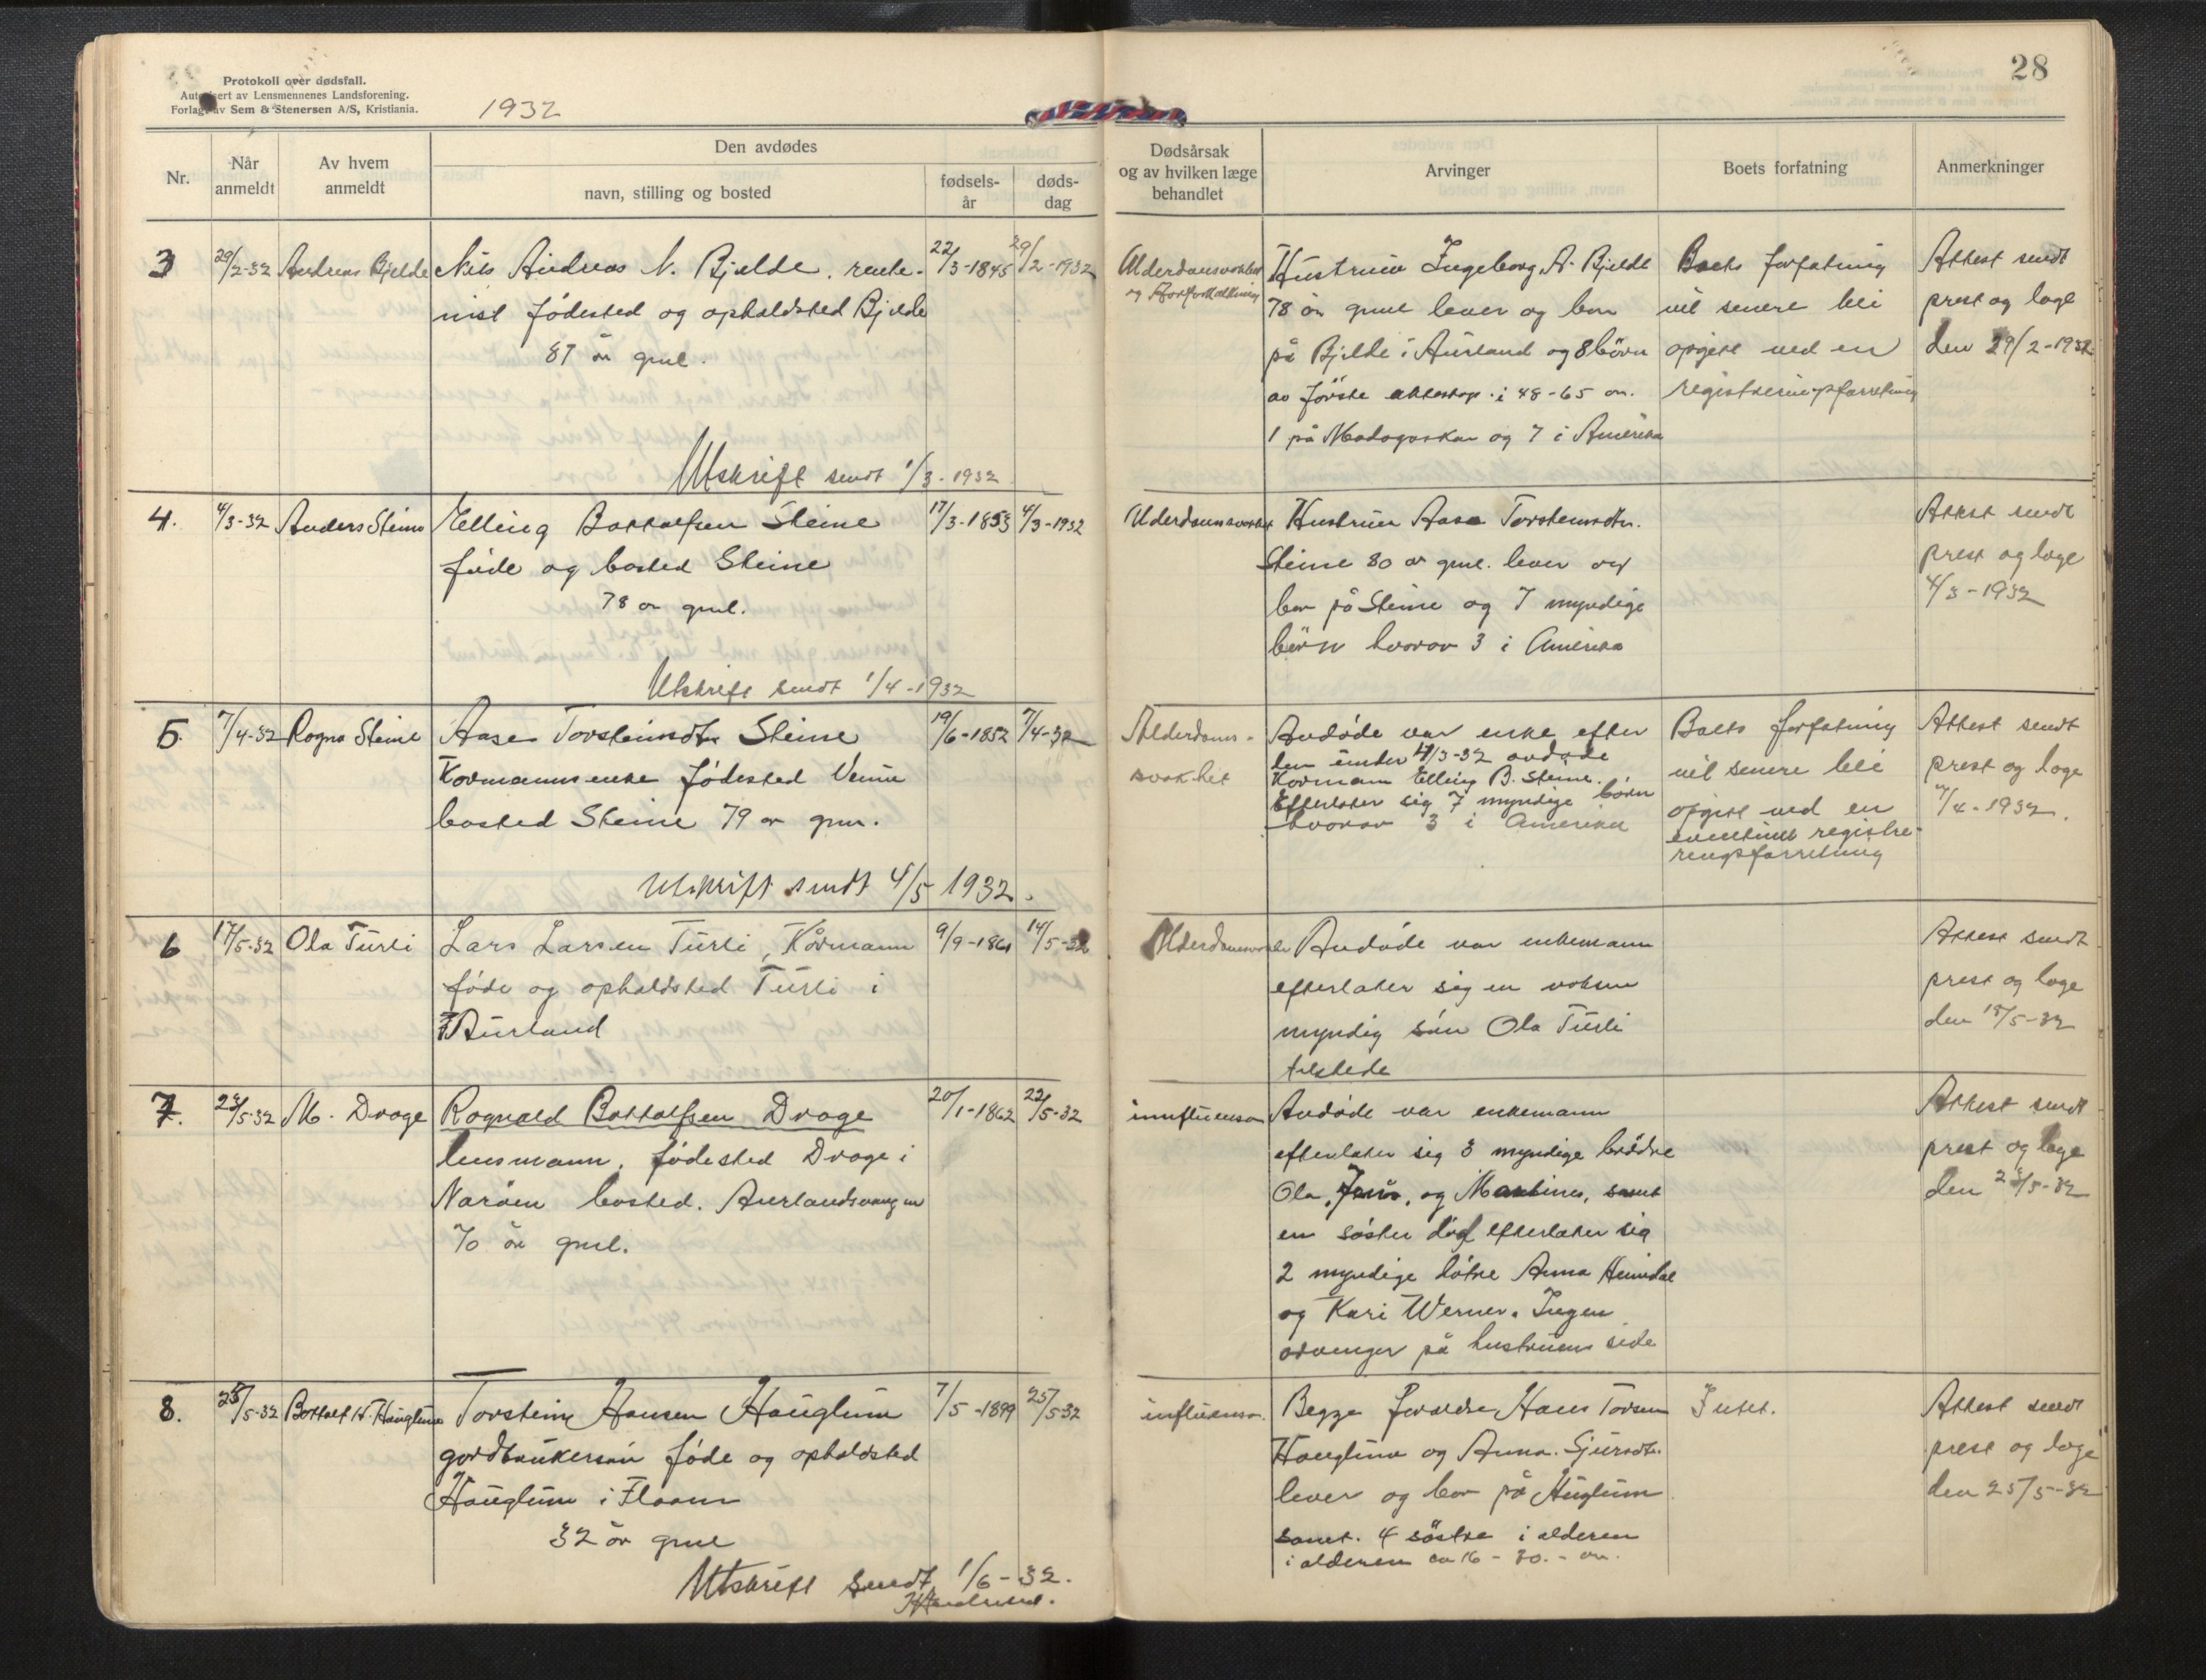 Protokoll over dødsfall.
Autorisert av Lensmennenes Landsforening.
Forlagt av Sem & Stenersen A/S, Kristiania.
1932
28
Nr.
Når anmeldt
Av hvem anmeldt
Den avdødes
navn, stilling og bosted
fødsels-
år
døds-
dag
Dødsårsak
og av hvilken læge
behandlet
Arvinger
Boets forfatning
Anmerkninger
3
29/2-32
Andreas Bjelde
Nils Andreas N. Bjelde, rente-
nist fødested og opholdsted Bjelde
87 år gml.
22/3-1845
29/2-1932
Alderdomsvakhet
og
Hustruen Ingeborg A. Bjelde
78 år gml lever og bor
på Bjelde i Aurland og 8 börn
av förste ekteskap i 48-65 år.
1 på Madagaskar og 7 i Amerika
Boets forfatning
vil senere bli
opgitt ved en
registreringsforretning
Attest sendt
prest og læge
den 29/2-1932
Utskrift sendt 1/3-1932
4.
4/3-32
Anders Steine
Elling Bottolfsen Steine
føde og bosted Steine
78 år gml.
17/3-1853
4/3-1932
Alderdomsvakhet
Hustruen Aase Torsteinsdtr.
Steine 80 år gml. lever og
bor på Steine og 7 myndige
börn hvorav 3 i Amerika
Attest sendt
prest og læge
4/3-1932
Utskrift sendt 1/4-1932
5.
7/4-32
Ragna Steine
Aase Torsteinsdtr Steine
Kårmannsenke fødested Venne
bosted Steine 79 år gml.
19/6-1852
7/4-32
Alderdoms-
svakhet
Avdøde var enke efter
den under 4/3-32 avdøde
Kårmann Elling B. Steine.
Efterlater sig 7 myndige börn
hvorav 3 i Amerika
Boets forfatning
vil senere bli
opgitt ved en
eventuell registre-
ringsforretning
Attest sendt
prest og læge
7/4-1932.
Utskrift sendt 4/5 1932.
6
17/5-32
Ola Turli
Lars Larsen Turli, Kårmann
føde og opholdsted Turli i
Aurland
9/9-1861
14/5-32
Alderdomsvakhet
Avdøde var enkemann
efterlater sig en voksen
myndig sön Ola Turli
tilstede
Attest sendt
prest og læge
den 18/5-32
7.
23/5-32
M. Drage
Rognald Bottolfsen Drage
lensmann, fødested Drage i
Nærøen bosted. Aurlandsvangen
70 år gml.
20/1-1862
22/5-32
innfluensa
Avdøde var enkemann
efterlater sig 3 myndige brödre
Ola, Jens, og Martinus, samt
en søster død efterlater sig
2 myndige døtre Anna Heimdal
og Kari Werner. Ingen
arvinger på hustruens side
Attest sendt
prest og læge
den 23/5-32
8.
25/5-32
Bottolf H. Hauglum
Torstein Hansen Hauglum
gårdbrukersön føde og opholdsted
Hauglum i Flaam
32 år gml
7/5-1899
25/5-32
influensa.
Begge foreldre Hans Torsen
Hauglum og Anna Sjursdtr.
lever og bor på Hauglum
samt. 4 søstre i alderen
i alderen ca 16-30.- år.
Intet.
Attest sendt
prest og læge
den 25/5-32
Utskrift sendt 1/6-32.